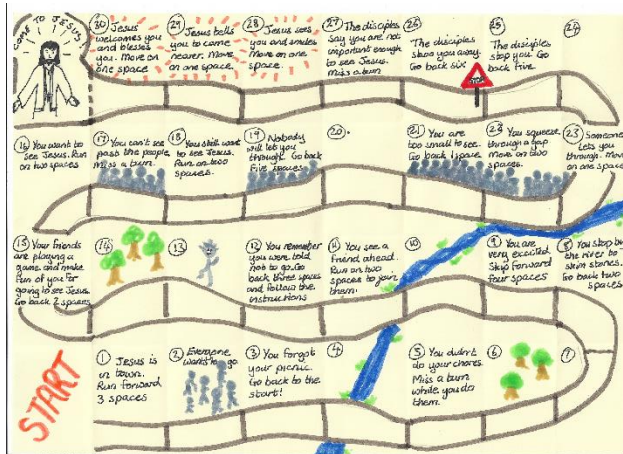 COME TO JESUS
30 Jesus
welcomes you
and blesses
you. Move on
one space
29 Jesus tells
you to come
nearer. Move
on one space.
28 Jesus sees
you and smiles
Move on one
space.
27 The disciples
say you are not
important enough
to see Jesus.
Miss a turn
26
The disciples
shoo you away.
Go back six
25
The disciples
stop you. Go
back five.
STOP
24
16 You want to
see Jesus. Run
on two spaces
17 You can't see
past the people,
Miss a turn.
18 You still want
to see Jesus.
Run on two
spaces.
19 Nobody
will let you
through. Go back
five spaces
20
21 You are
too small to see.
Go back 1 space
22 You squeeze
through a gap
Move on two
spaces.
23 Someone
lets you
through. Move
on one space
15 Your friends
are playing a
game and make
fun of you for
going to see Jesus.
Go back 2 spaces
14
13
12 You remember
you were told
not to go. Go
back three spaces
and follow the
instructions
11 You see a
friend ahead.
Run on two
spaces to join
them.
10
9 You are
very excited
Skip forward
four spaces
8 You stop by
the river to
skim stones.
Go back two
spaces
START
1 Jesus is
in town.
Run forward
3 spaces
2 Everyone
wants to go
3 You forgot
your picnic.
Go back to the
start!
4
5 You didn't
do your chores.
Miss a turn
while you do
them.
6
7